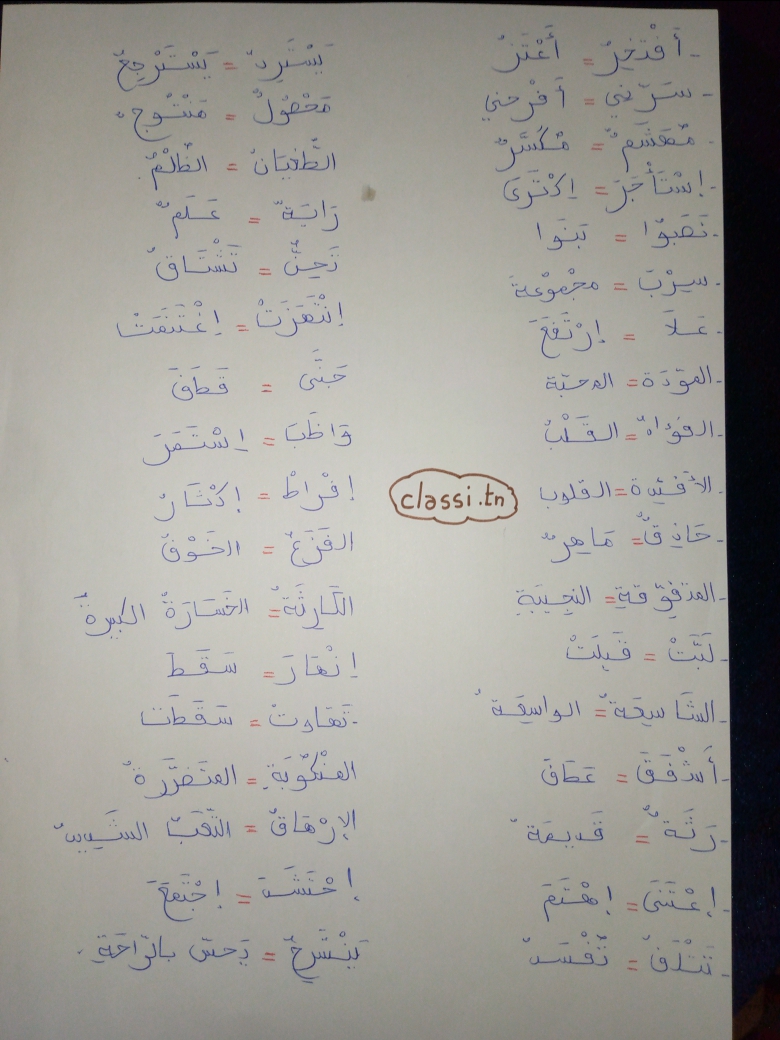 - أَفْتَخِرُ = أَعْتَزُّ
- سَرَّنِي = أَفْرَحَنِي
- مُهَشَّمٌ = مُكَسَّرٌ
- اِسْتَأْجَرَ = اِكْتَرَى
- نَصَبُوا = بَنَوا
- سِرْبَ = مَجْمُوعَةَ
- عَلَا = اِرْتَفَعَ
- المَوَدَّة = المحبّة
- الفُؤَادُ = القَلْبُ
- الأَفْئِدَة = القلوب
- حَاذِقٌ = مَاهِرٌ
- المتفوّقةِ = النجيبَةِ
- لَبَّتْ = قَبِلَتْ
- الشَّاسِعَةُ = الواسِعَةُ
- أَشْفَقَ = عَطَفَ
- رَثَّةٌ = قَدِيمَةٌ
- اِعْتَنَى = اِهْتَمَّ
- تَتْلَفُ = تَفْسَدُ
يَسْتَرِدُّ = يَسْتَرْجِعُ
مَحْصُولٌ = مَنْتُوجٌ
الطُّغْيَانُ = الظُّلْمُ
رَايَةٌ = عَلَمٌ
تَحِنُّ = تَشْتَاقُ
اِنْتَهَزَتْ = اِغْتَنَمَتْ
جَنَّى = قَطَفَ
وَاظَبَ = اِسْتَمَرَّ
إِفْرَاطٌ = إِكْثَارٌ
الفَزَعُ = الخَوْفُ
الكَارِثَةُ = الخَسَارَةُ الكبيرةُ
اِنْهَارَ = سَقَطَ
- تَهَاوَتْ = سَقَطَت
المَنْكُوبَةِ = المتضَرِّرَةُ
الإِرْهَاقُ = التَّعَبُ الشَّدِيدُ
اِحْتَشَدَ = اِجْتَمَعَ
يَنْشَرِحُ = يَحِسّ بالرَّاحَةِ.
classi.tn